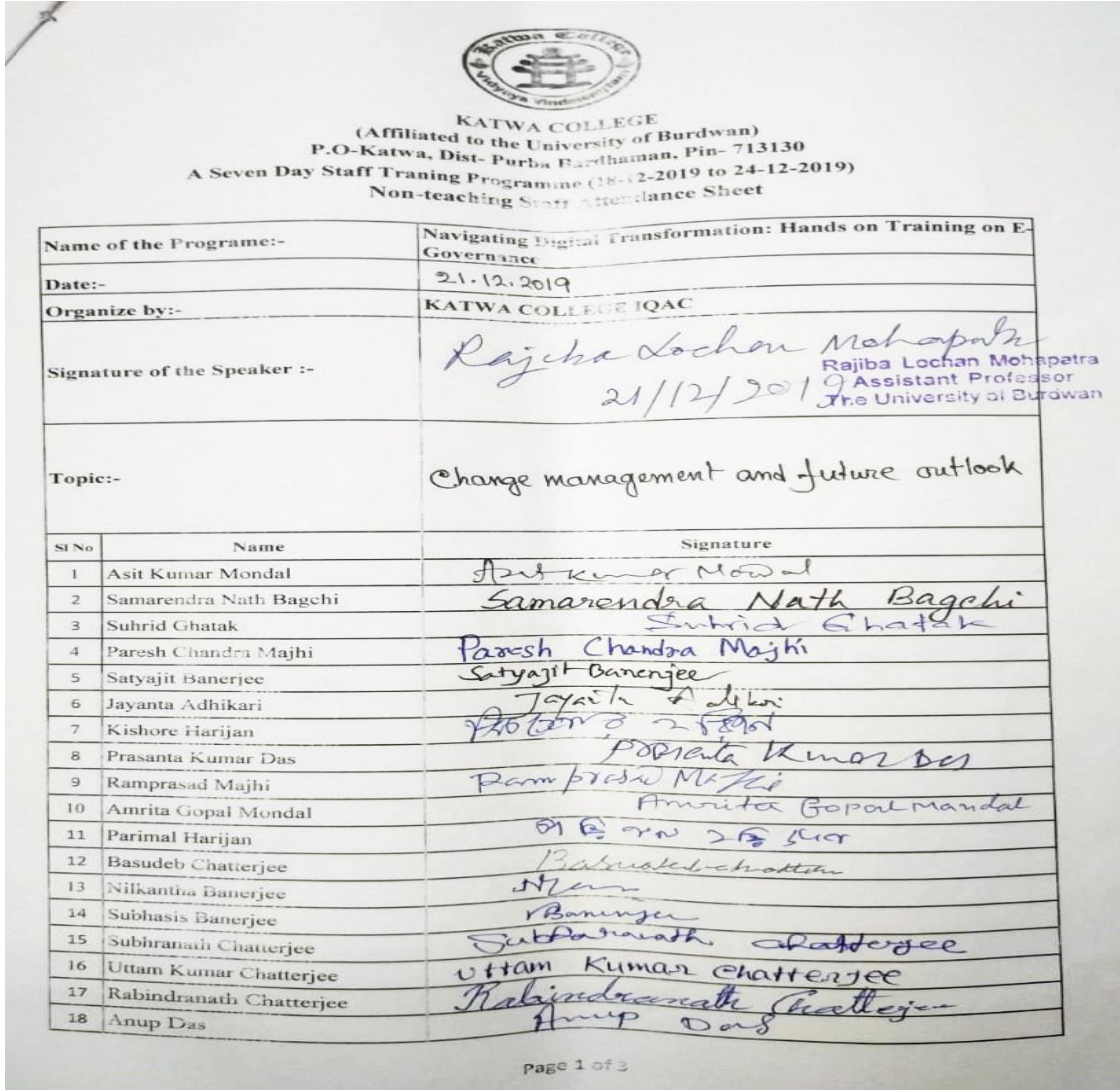 Katwa College
Vidyaya Vindateamritam
KATWA COLLEGE
(Affiliated to the University of Burdwan)
P.O-Katwa, Dist- Purba Bardhaman, Pin- 713130
A Seven Day Staff Traning Programme (18-12-2019 to 24-12-2019)
Non-teaching Staff Attendance Sheet
Name of the Programe:- Navigating Digital Transformation: Hands on Training on E-
Governance
Date:- 21.12.2019
Organize by:- KATWA COLLEGE IQAC
Signature of the Speaker :- Rajiba Lochan Mohapatra
Rajiba Lochan Mohapatra
21/12/2019 Assistant Professor
The University of Burdwan
Topic:- Change management and future outlook
Sl No Name Signature
1 Asit Kumar Mondal Asit Kumar Mondal
2 Samarendra Nath Bagchi Samarendra Nath Bagchi
3 Suhrid Ghatak Suhrid Ghatak
4 Paresh Chandra Majhi Paresh Chandra Majhi
5 Satyajit Banerjee Satyajit Banerjee
6 Jayanta Adhikari Jayanta Adhikari
7 Kishore Harijan
8 Prasanta Kumar Das Prasanta Kumar Das
9 Ramprasad Majhi Ramprasad Majhi
10 Amrita Gopal Mondal Amrita Gopal Mandal
11 Parimal Harijan পরিমল হরিজন
12 Basudeb Chatterjee Basudeb chatterjee
13 Nilkantha Banerjee
14 Subhasis Banerjee Banerjee
15 Subhranath Chatterjee Subhranath Chatterjee
16 Uttam Kumar Chatterjee Uttam Kumar Chatterjee
17 Rabindranath Chatterjee Rabindranath Chatterjee
18 Anup Das Anup Das
Page 1 of 3